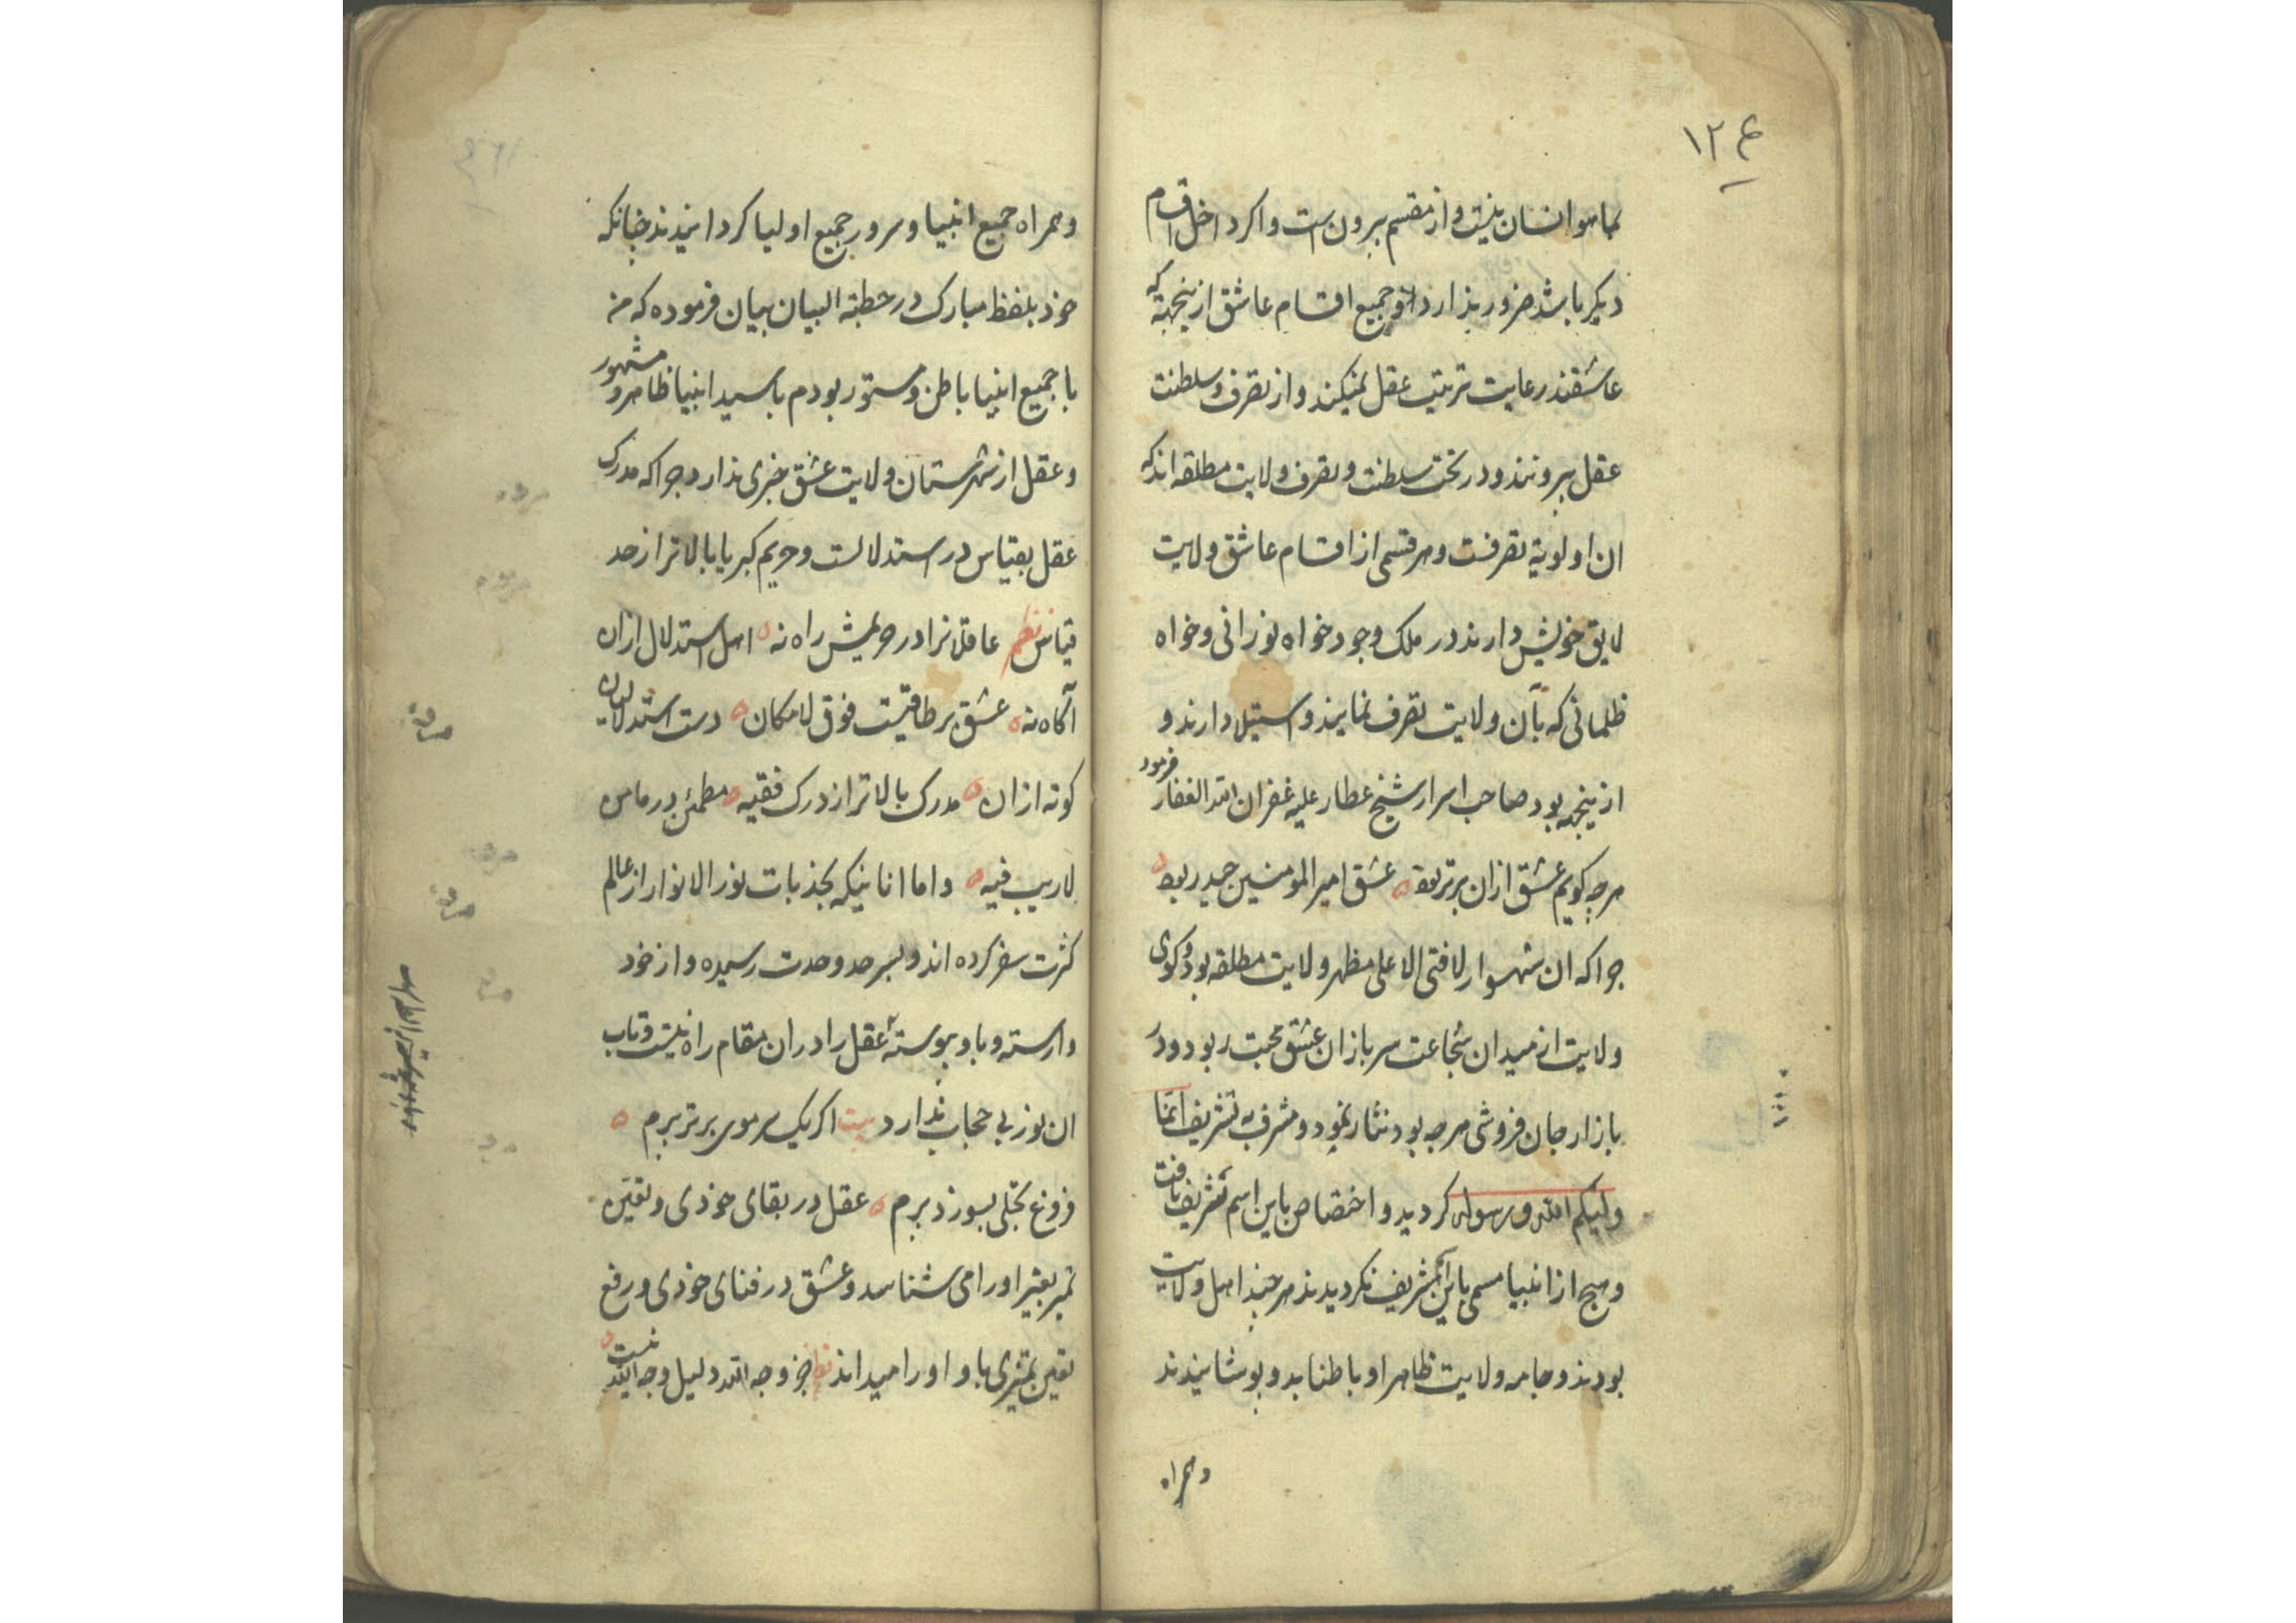 ۱۲۶
بماهو انسان نیست و از مقسم بیرون است و اگر داخل اقسام
دیگر باشد ضرور ندارد و جمیع اقسام عاشق ازینجهة که
عاشقند رعایت تربیت عقل نمیکنند و از تصرف و سلطنت
عقل بیرونند و در تخت سلطنت و تصرف ولایت مطلقه اند که
ان اولویة تصرفست و هر قسمی از اقسام عاشق ولایت
لایق خویش دارند در ملک وجود خواه نورانی و خواه
ظلمانی که بآن ولایت تصرف نمایند و استیلا دارند و
ازینجهه بود صاحب اسرار شیخ عطار علیه غفران الله الغفار فرمود
هرچه کویم عشق ازان برتر بود عشق امیر المومنین حیدر بود
چرا که ان شهسوار لافتی الا علی مظهر ولایت مطلقه بود و کوی
ولایت از میدان شجاعت سربازان عشق محبت ربود و در
بازار جان فروشی هرچه بود نثار نمود و مشرف به تشریف انما
ولیکم الله و رسوله کردید و اختصاص باین اسم تشریف یافت
و هیچ از انبیا مسمی باین تشریف نکردیدند هرچند اهل ولایت
بودند و جامه ولایت ظاهرا و باطنا بدو پوشانیدند
و همراه
و همراه جمیع انبیا و سرور جمیع اولیا کردانیدند چنانکه
خود بلفظ مبارک در خطبة البیان بیان فرموده که من
با جمیع انبیا باطن و مستور بودم با سید انبیا ظاهر و مشهور
و عقل از شهرستان ولایت عشق خبری ندارد چرا که مدرک
عقل بقیاس در استدلالست و حریم کبریا بالاتر از حد
قیاس نظم عاقلانرا در حریمش راه نه اهل استدلال ازان
آکاه نه عشق بر طاقیست فوق لامکان دست استدلالیان
کوته ازان مدرک بالاتر از درک فقیه مطمئن در مامن
لاریب فیه و اما انانیکه بجذبات نور الانوار از عالم
کثرت سفر کرده اند و بسرحد وحدت رسیده و از خود
وارسته و باو پیوسته عقل را دران مقام راه نیست و تاب
ان نور بی حجاب ندارد بیت اکر یک سر موی برتر پرم
فروغ تجلی بسوزد پرم عقل در بقای خودی و تعین
تمیز بغیر او را می شناسد و عشق در فنای خودی و رفع
تعین تمیزی باو او را میداند نظم جز وجه الله دلیل وجه الله نیست